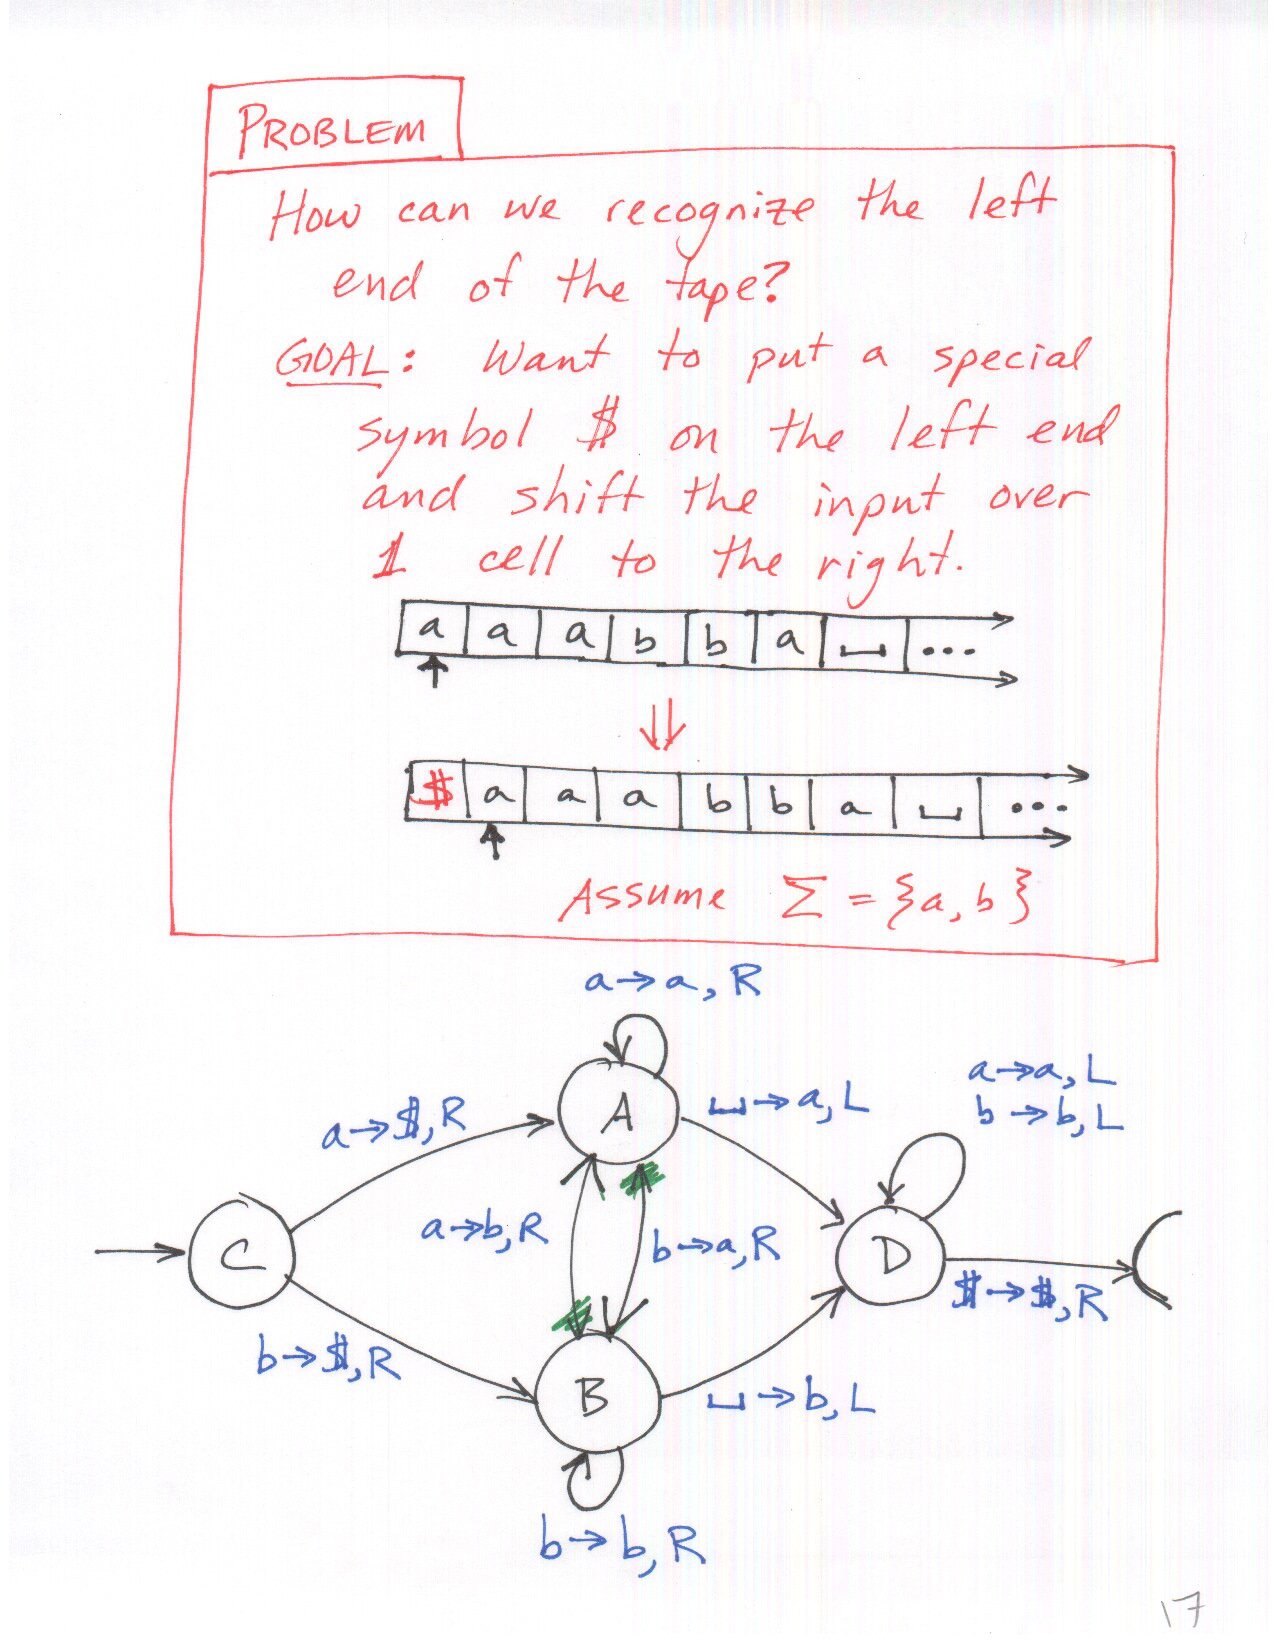 PROBLEM
How can we recognize the left
end of the tape?
GOAL: Want to put a special
symbol $ on the left end
and shift the input over
1 cell to the right.
a a a b b a ⊔ ...
$ a a a b b a ⊔ ...
Assume Σ = {a, b}
a→a, R
a→a, L
b→b, L
A
⊔→a, L
a→$, R
a→b, R
b→a, R
C
D
$→$, R
b→$, R
B
⊔→b, L
b→b, R
17